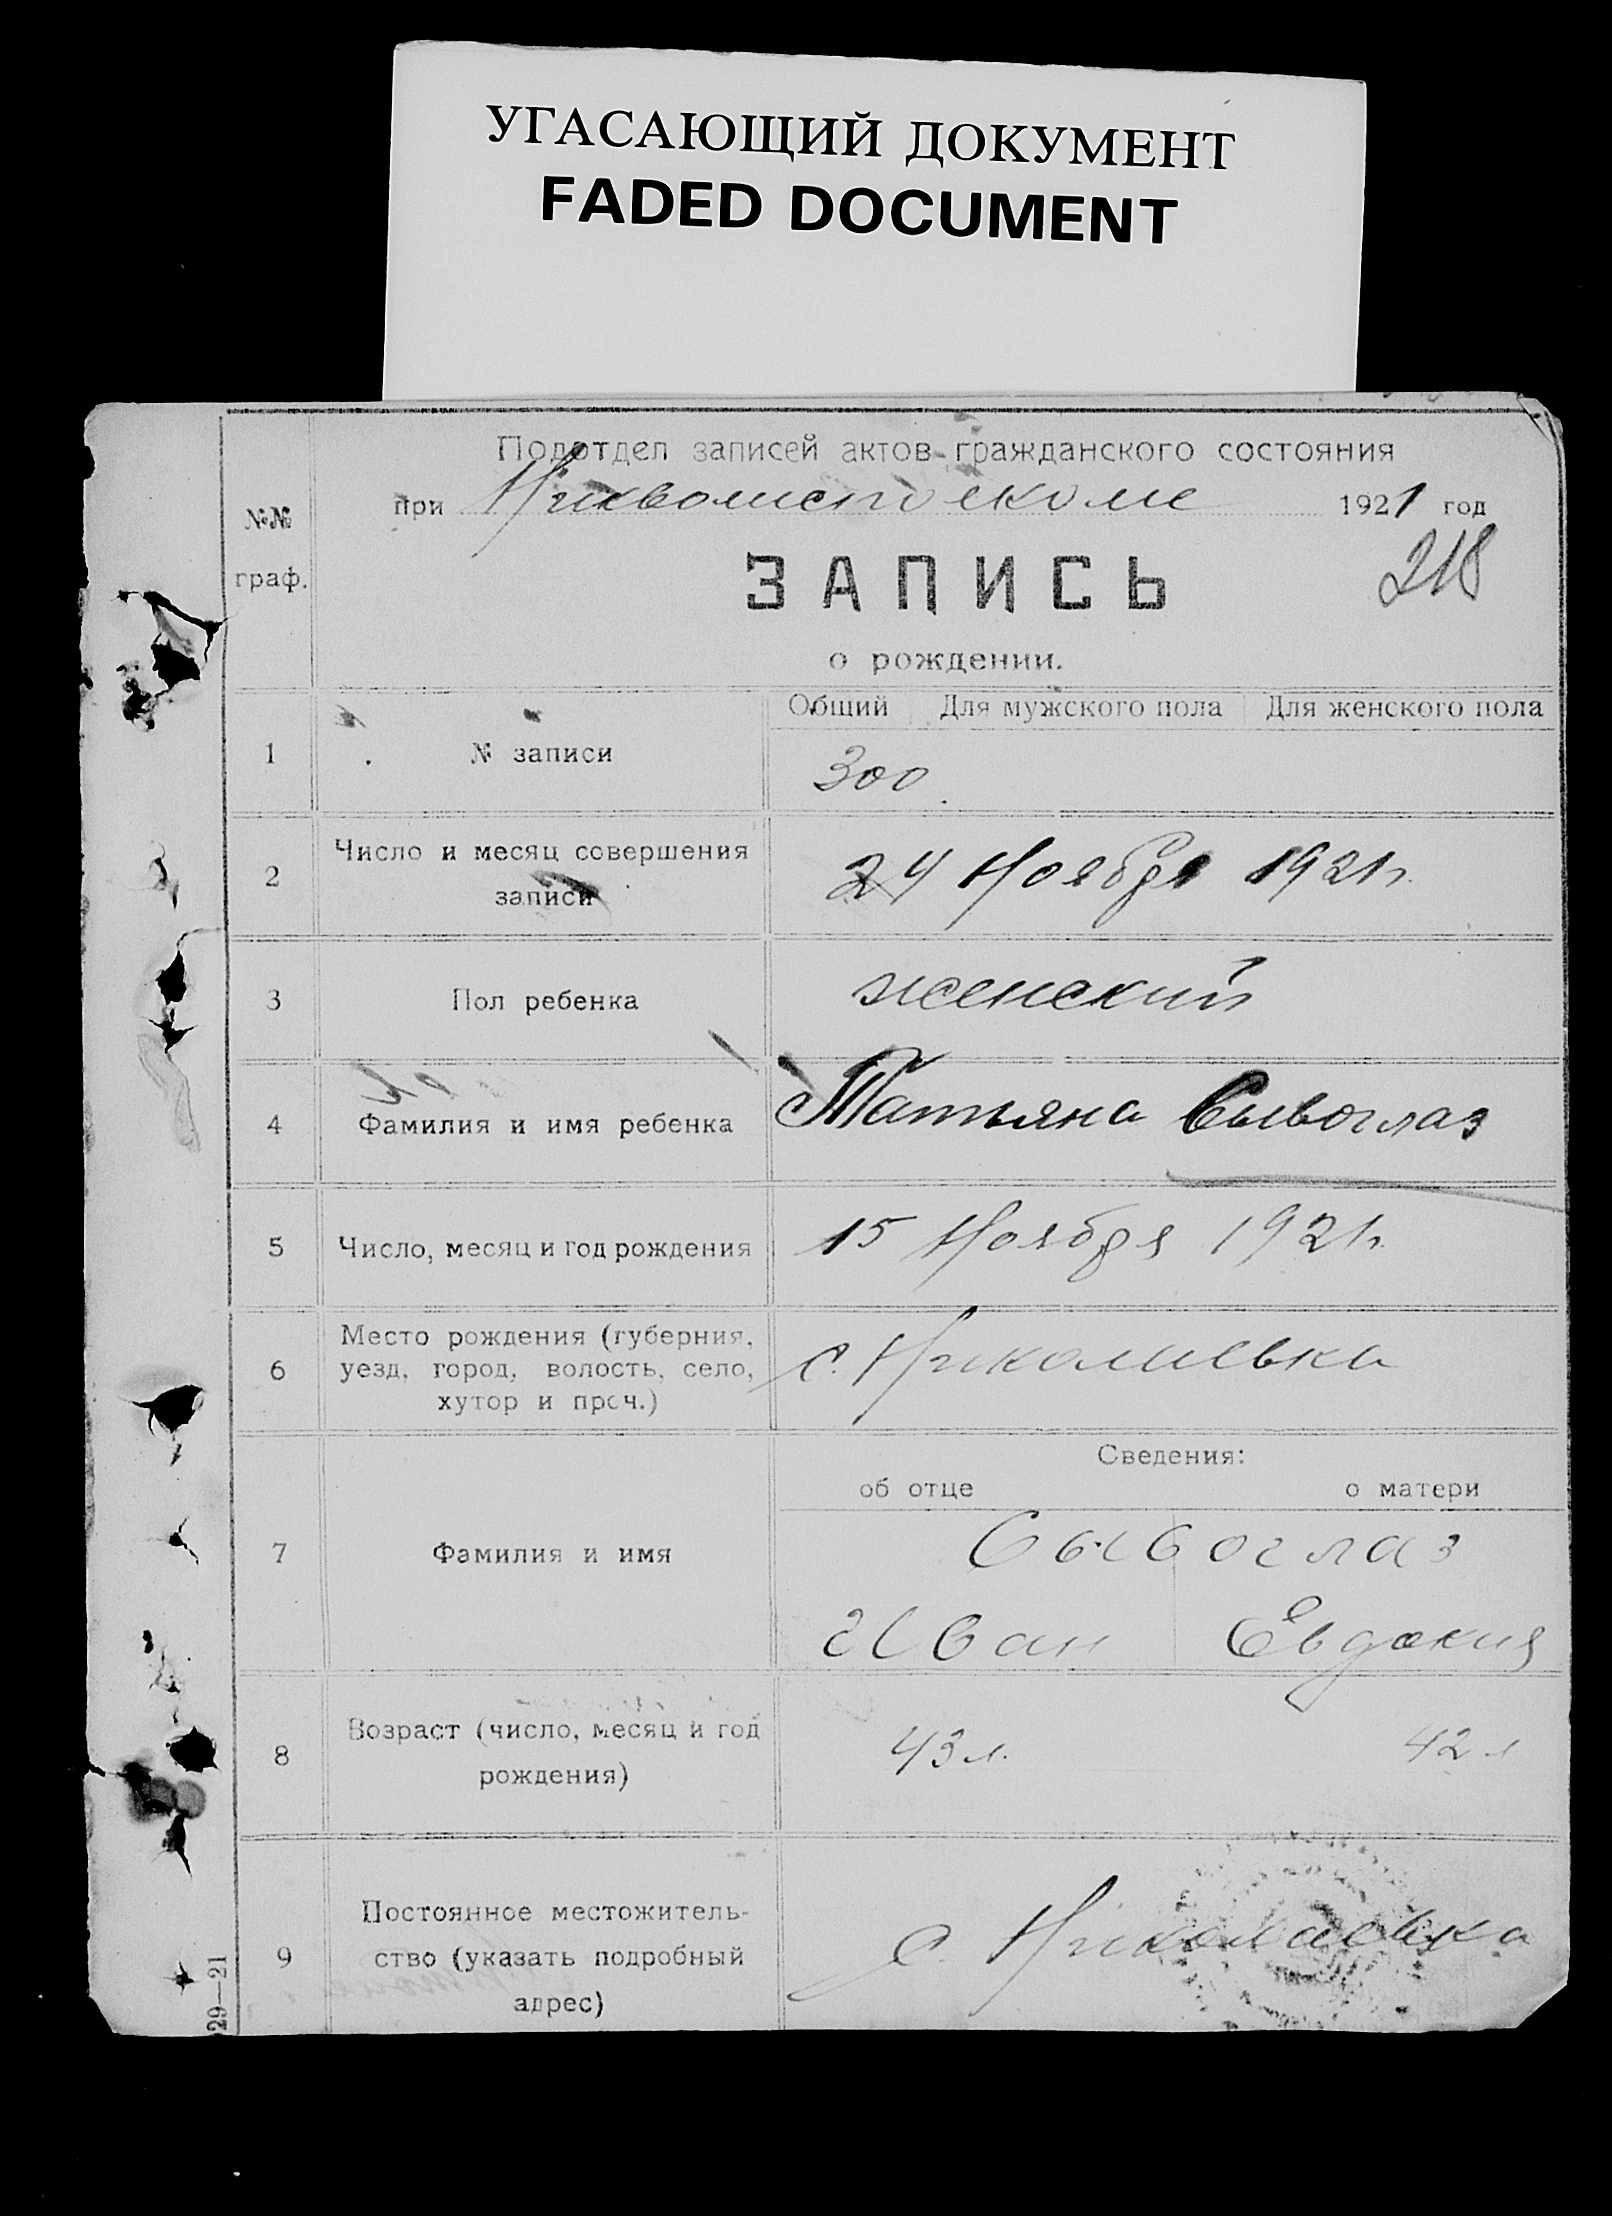 УГАСАЮЩИЙ ДОКУМЕНТ
FADED DOCUMENT
Подотдел записей актов гражданского состояния
при Никволисполкоме 1921 год
№№
граф.
218
ЗАПИСЬ
о рождении.
Общий Для мужского пола Для женского пола
1 № записи 300
2 Число и месяц совершения
записи
24 Ноября 1921 г.
3 Пол ребенка женский
4 Фамилия и имя ребенка Татьяна Сывоглаз
5 Число, месяц и год рождения 15 Ноября 1921 г.
6 Место рождения (губерния,
уезд, город, волость, село,
хутор и проч.)
с. Николаевка
Сведения:
об отце о матери
7 Фамилия и имя
Сывоглаз
Иван Евдокия
8 Возраст (число, месяц и год
рождения)
43 л. 42 л
9 Постоянное местожитель-
ство (указать подробный
адрес)
с. Николаевка
29—21